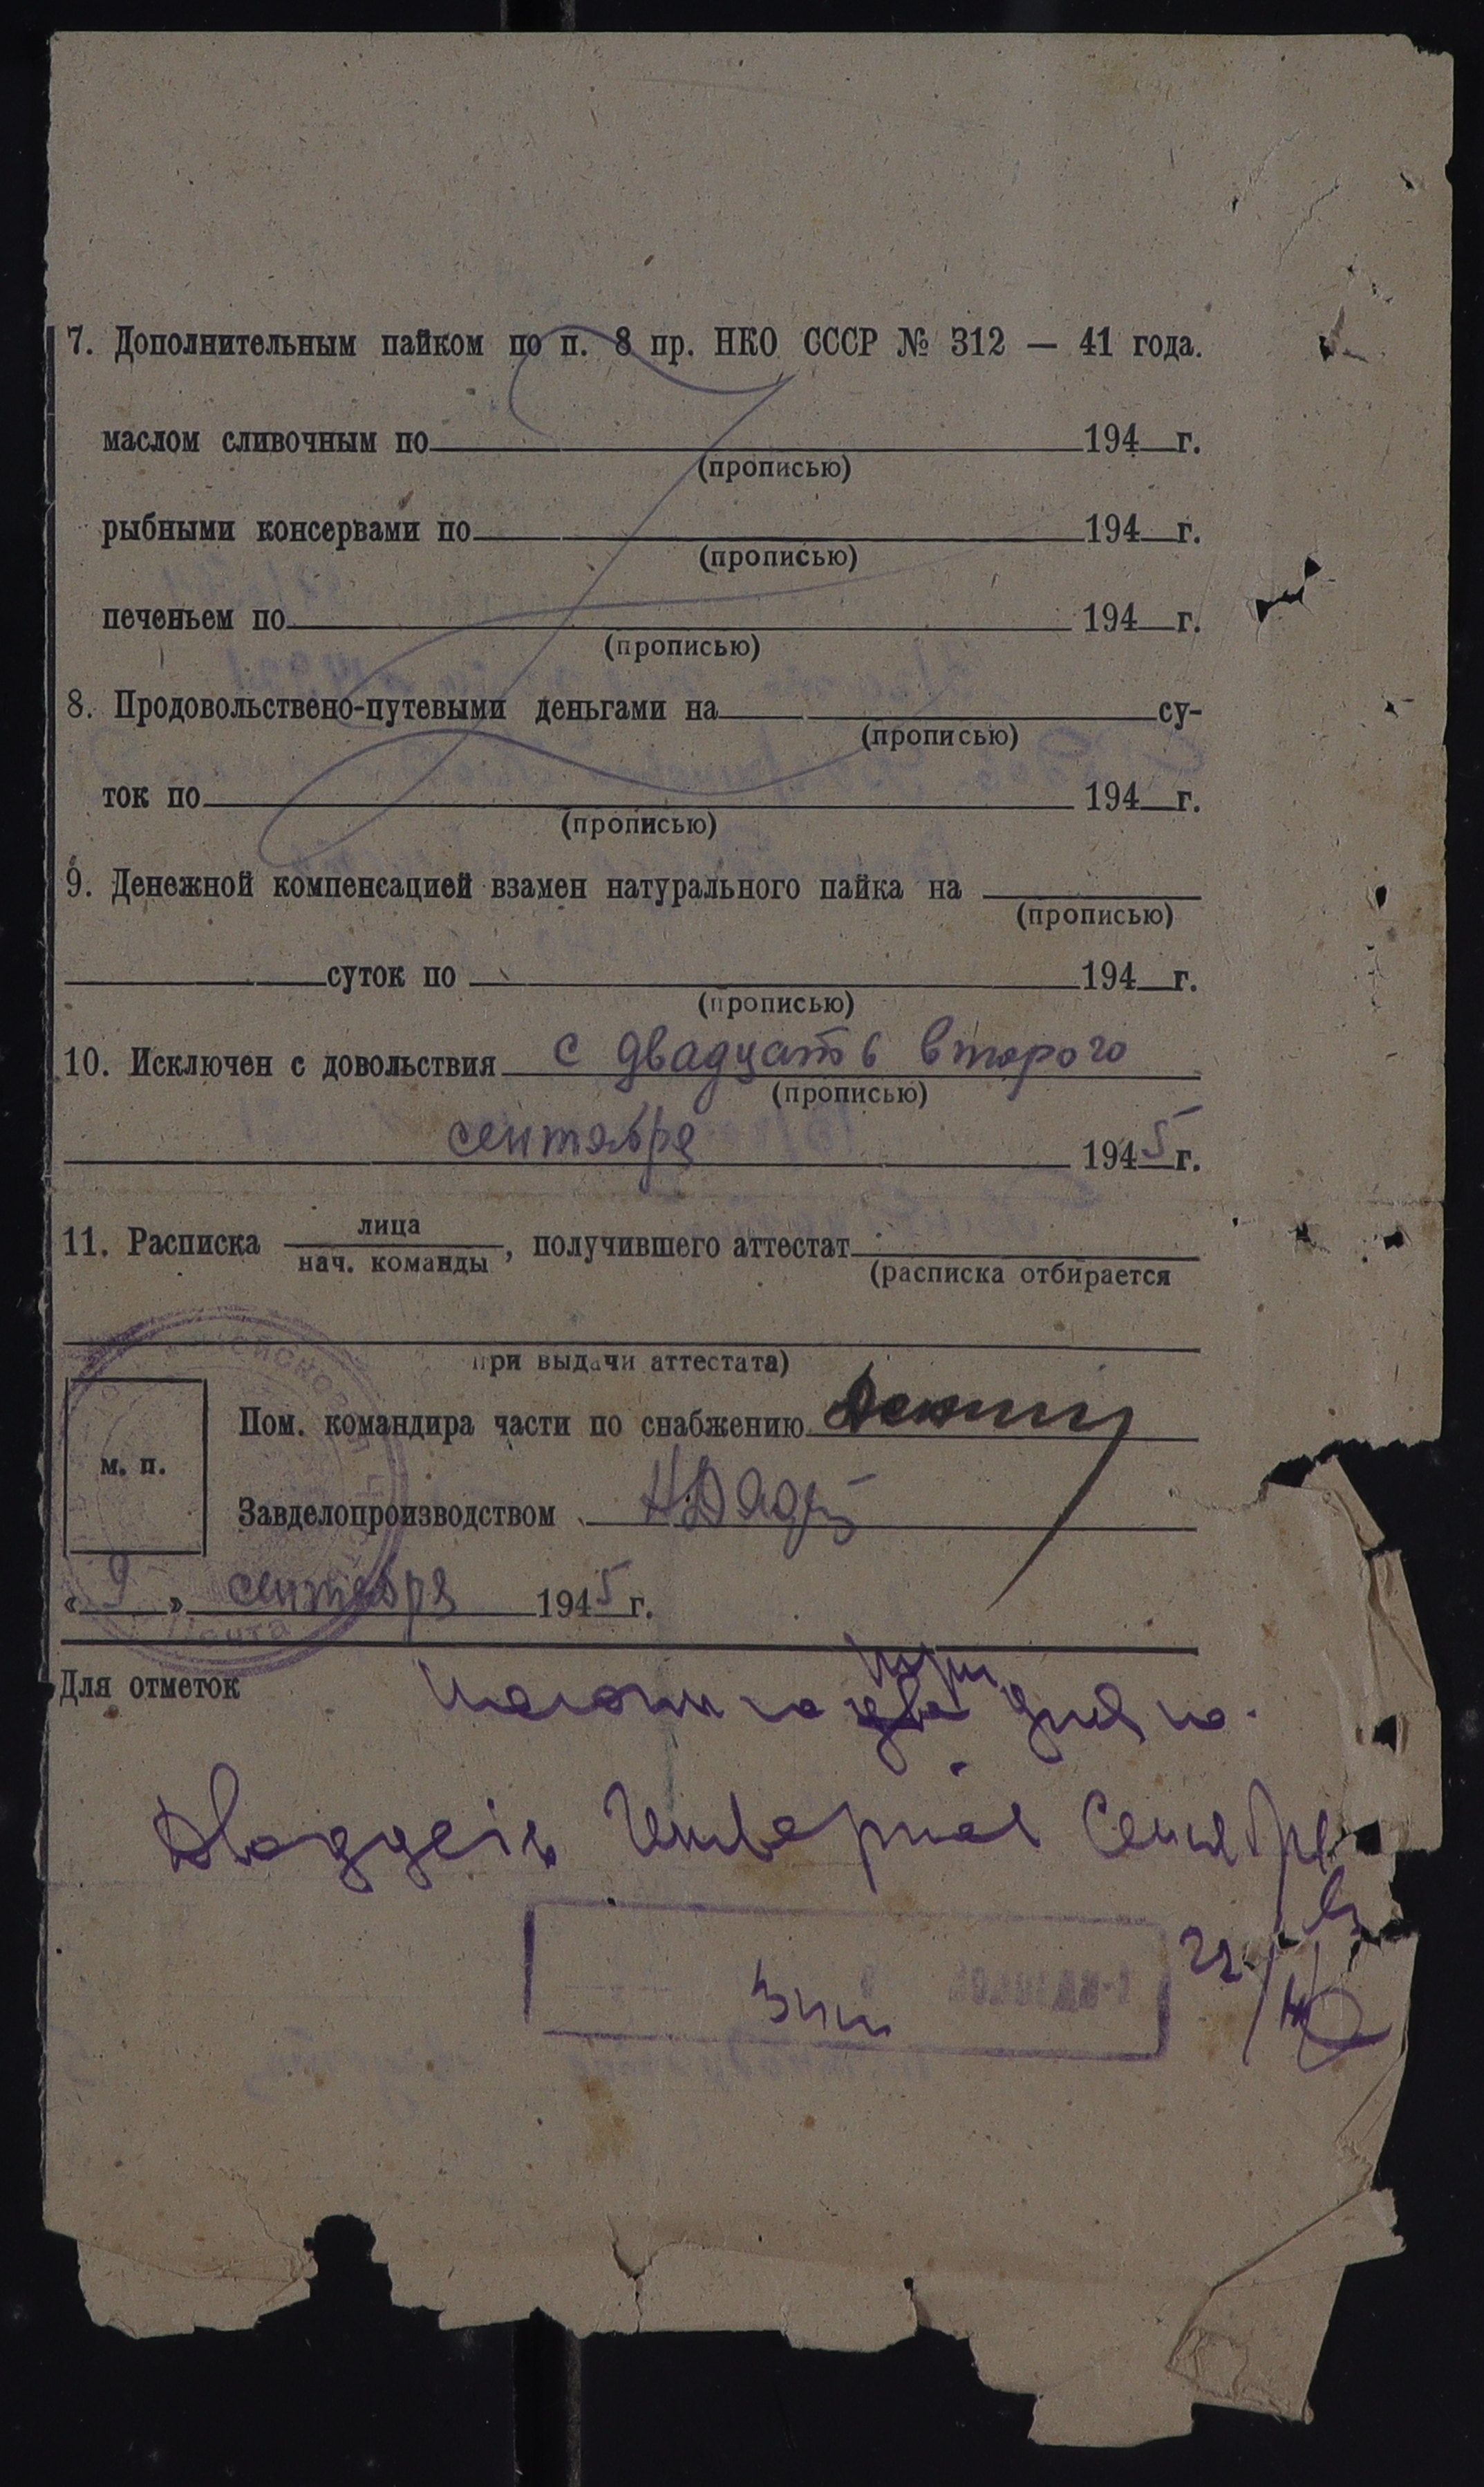 7. Дополнительным пайком по п. 8 пр. НКО СССР № 312 — 41 года.
маслом сливочным по 194 г.
(прописью)
рыбными консервами по 194 г.
(прописью)
печеньем по 194 г.
(прописью)
8. Продовольствено-путевыми деньгами на су-
(прописью)
ток по 194 г.
(прописью)
9. Денежной компенсацией взамен натурального пайка на
(прописью)
суток по 194 г.
(прописью)
10. Исключен с довольствия с двадцать второго
(прописью)
сентября 1945 г.
11. Расписка лица
нач. команды , получившего аттестат
(расписка отбирается
при выдачи аттестата)
Пом. командира части по снабжению
м. п.
Завделопроизводством
« 9 » сентября 1945 г.
Почта
Для отметок три
на два дня по
Двадцать Четвертое Сентября
22